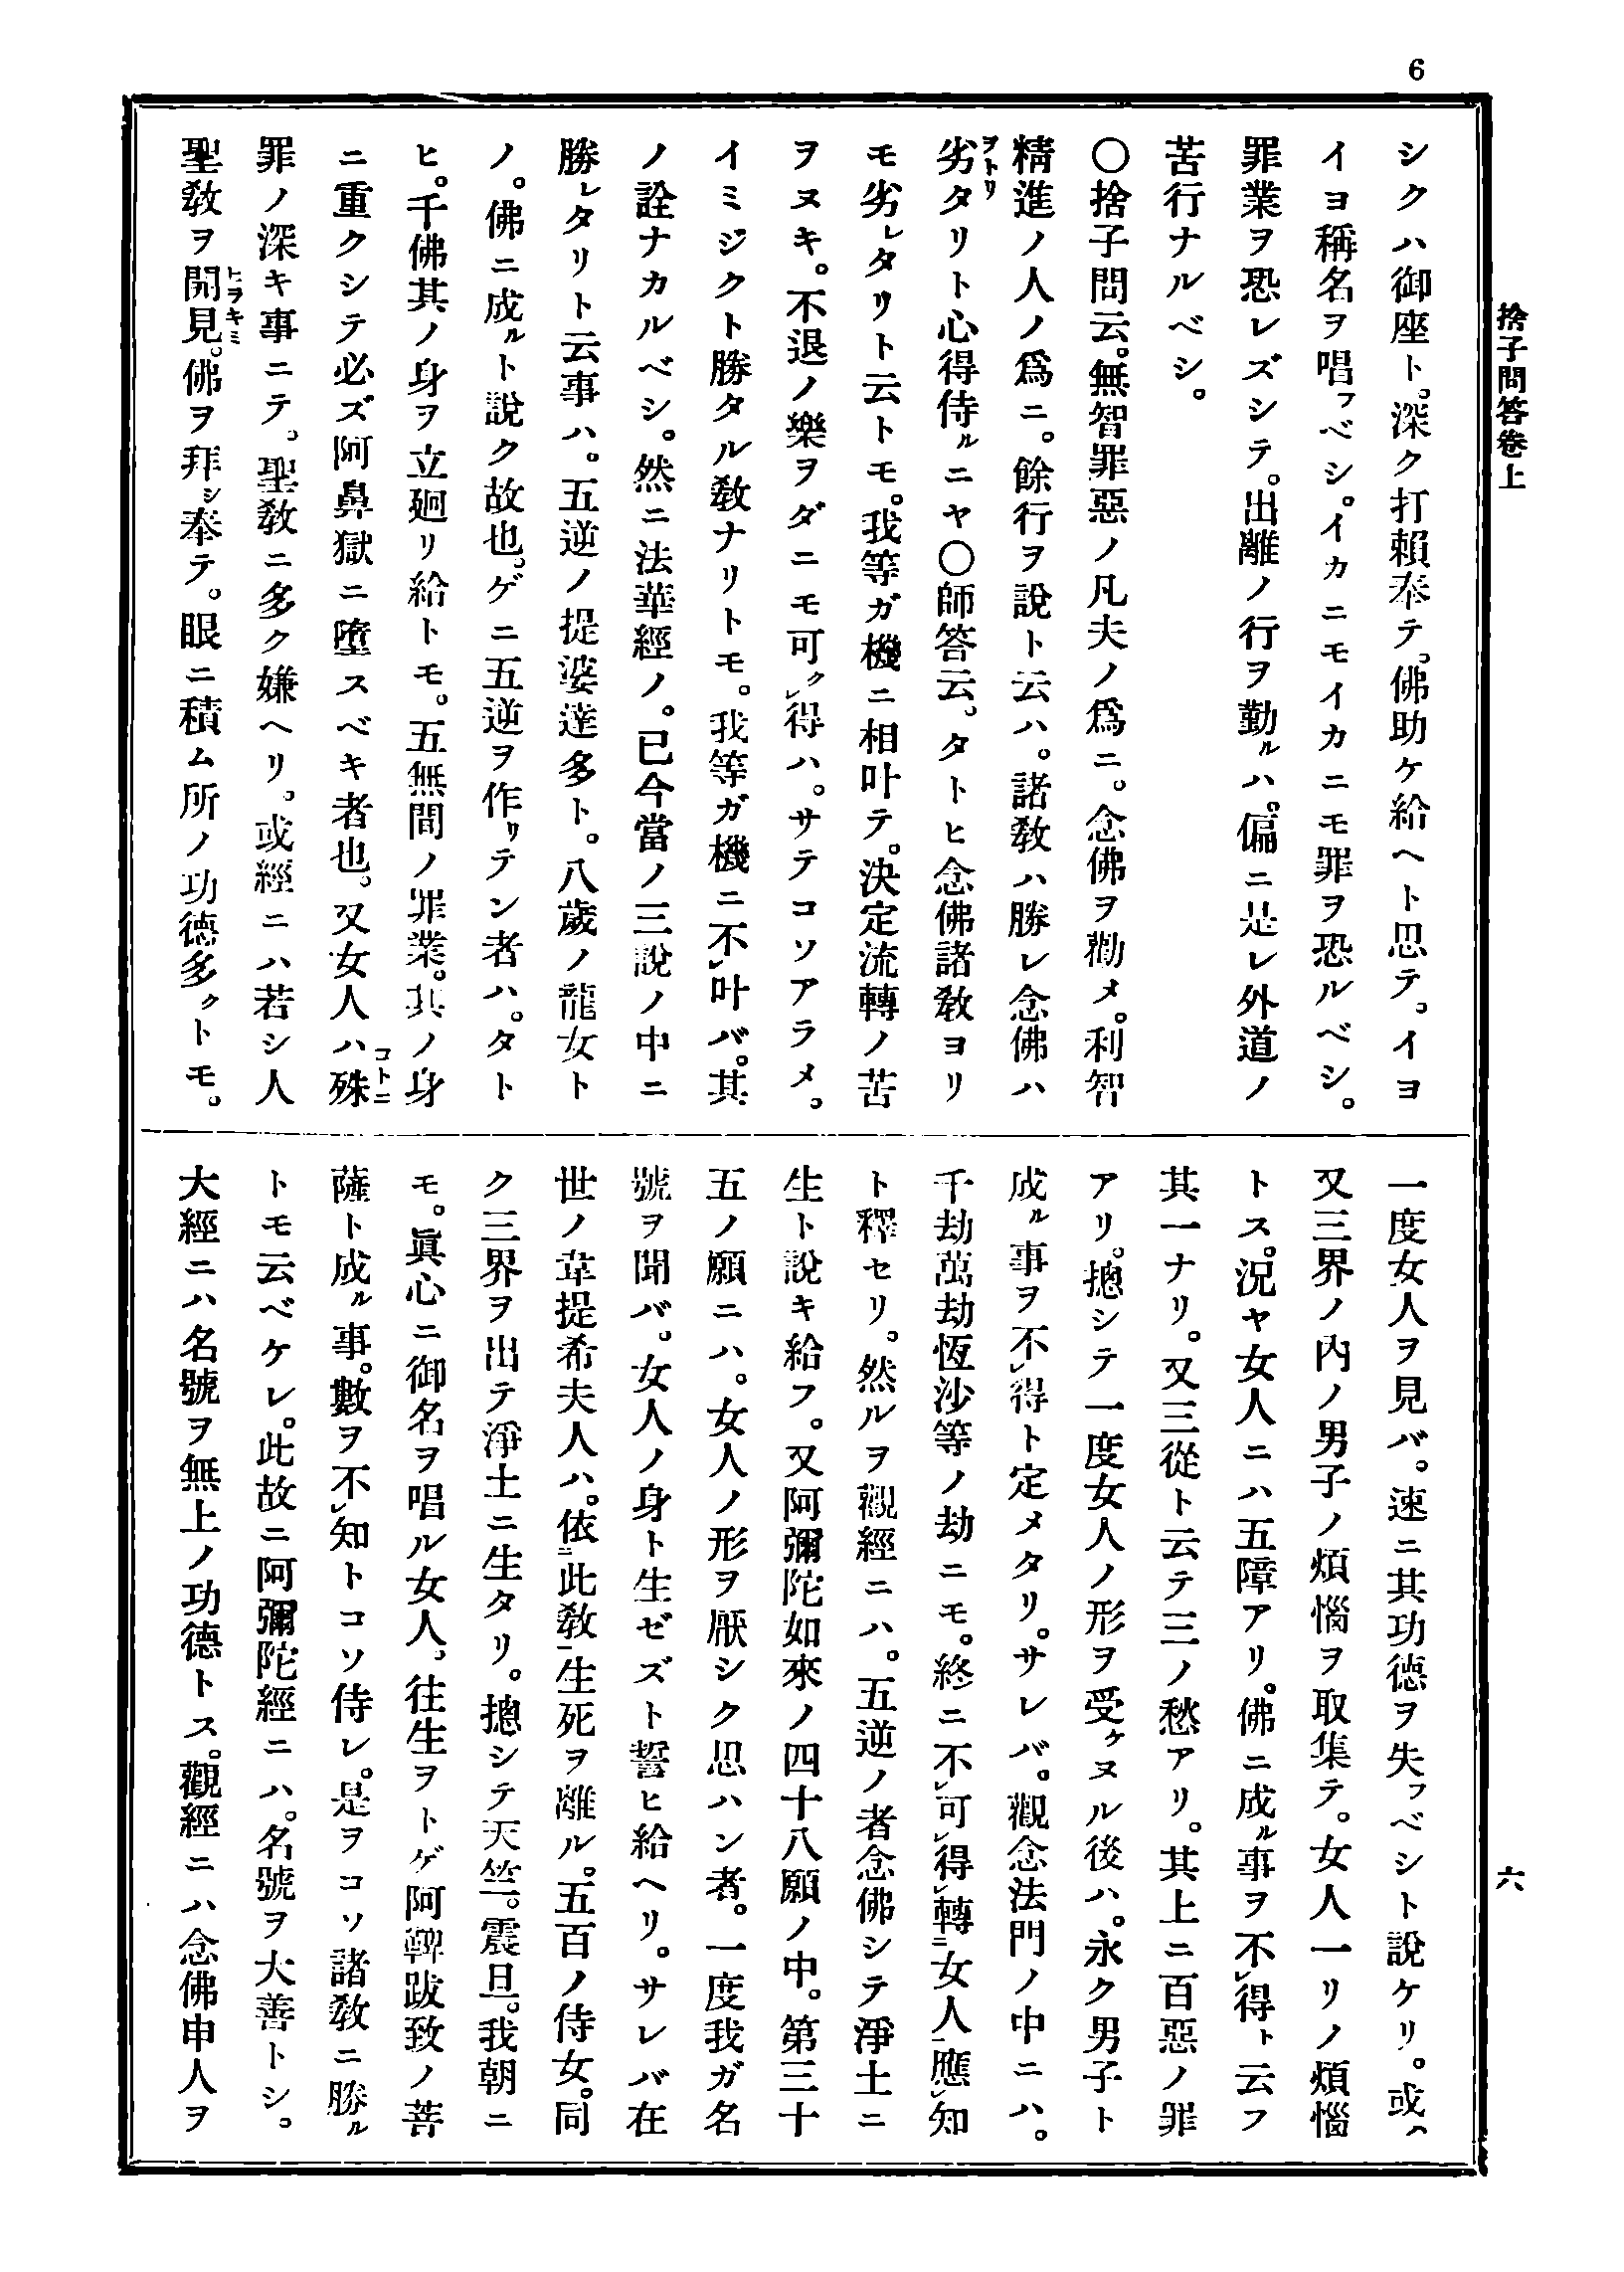 6
捨子問答卷上
六
シクハ御座ト。深ク打賴奉テ。佛助ケ給ヘト思テ。イヨ
イヨ稱名ヲ唱フベシ。イカニモイカニモ罪ヲ恐ルベシ。
罪業ヲ恐レズシテ。出離ノ行ヲ勤ルハ。偏ニ是レ外道ノ
苦行ナルベシ。
〇捨子問云。無智罪惡ノ凡夫ノ爲ニ。念佛ヲ勸メ。利智
精進ノ人ノ爲ニ。餘行ヲ說ト云ハ。諸敎ハ勝レ念佛ハ
劣ヲトリタリト心得侍ルニヤ〇師答云。タトヒ念佛諸敎ヨリ
モ劣レタリト云トモ。我等ガ機ニ相叶テ。決定流轉ノ苦
ヲヌキ。不退ノ樂ヲダニモ可クレ得ハ。サテコソアラメ。
イミジクト勝タル敎ナリトモ。我等ガ機ニ不レ叶バ。其
ノ詮ナカルベシ。然ニ法華經ノ。已今當ノ三說ノ中ニ
勝レタリト云事ハ。五逆ノ提婆達多ト。八歲ノ龍女ト
ノ。佛ニ成ルト說ク故也。ゲニ五逆ヲ作リテン者ハ。タト
ヒ。千佛其ノ身ヲ立廻リ給トモ。五無間ノ罪業。其ノ身
ニ重クシテ必ズ阿鼻獄ニ墮スベキ者也。又女人ハ殊コトニ
罪ノ深キ事ニテ。聖敎ニ多ク嫌ヘリ。或經ニハ若シ人
聖敎ヲ開見ヒラキミ。佛ヲ拜シ奉テ。眼ニ積ム所ノ功德多クトモ。
一度女人ヲ見バ。速ニ其功德ヲ失フベシト說ケリ。或ハ
又三界ノ內ノ男子ノ煩惱ヲ取集テ。女人一リノ煩惱
トス。況ヤ女人ニハ五障アリ。佛ニ成ル事ヲ不レ得ト云フ
其一ナリ。又三從ト云テ三ノ愁アリ。其上ニ百惡ノ罪
アリ。摠シテ一度女人ノ形ヲ受ケヌル後ハ。永ク男子ト
成ル事ヲ不レ得ト定メタリ。サレバ。觀念法門ノ中ニハ。
千劫萬劫恆沙等ノ劫ニモ。終ニ不レ可レ得レ轉ニ女人一應レ知
ト釋セリ。然ルヲ觀經ニハ。五逆ノ者念佛シテ淨土ニ
生ト說キ給フ。又阿彌陀如來ノ四十八願ノ中。第三十
五ノ願ニハ。女人ノ形ヲ厭シク思ハン者。一度我ガ名
號ヲ聞バ。女人ノ身ト生ゼズト誓ヒ給ヘリ。サレバ在
世ノ韋提希夫人ハ。依ニ此敎一生死ヲ離ル。五百ノ侍女。同
ク三界ヲ出テ淨土ニ生タリ。摠シテ天竺。震旦。我朝ニ
モ。眞心ニ御名ヲ唱ル女人。往生ヲトゲ阿鞞跋致ノ菩
薩ト成ル事。數ヲ不レ知トコソ侍レ。是ヲコソ諸敎ニ勝ル
トモ云ベケレ。此故ニ阿彌陀經ニハ。名號ヲ大善トシ。
大經ニハ名號ヲ無上ノ功德トス。觀經ニハ念佛申人ヲ